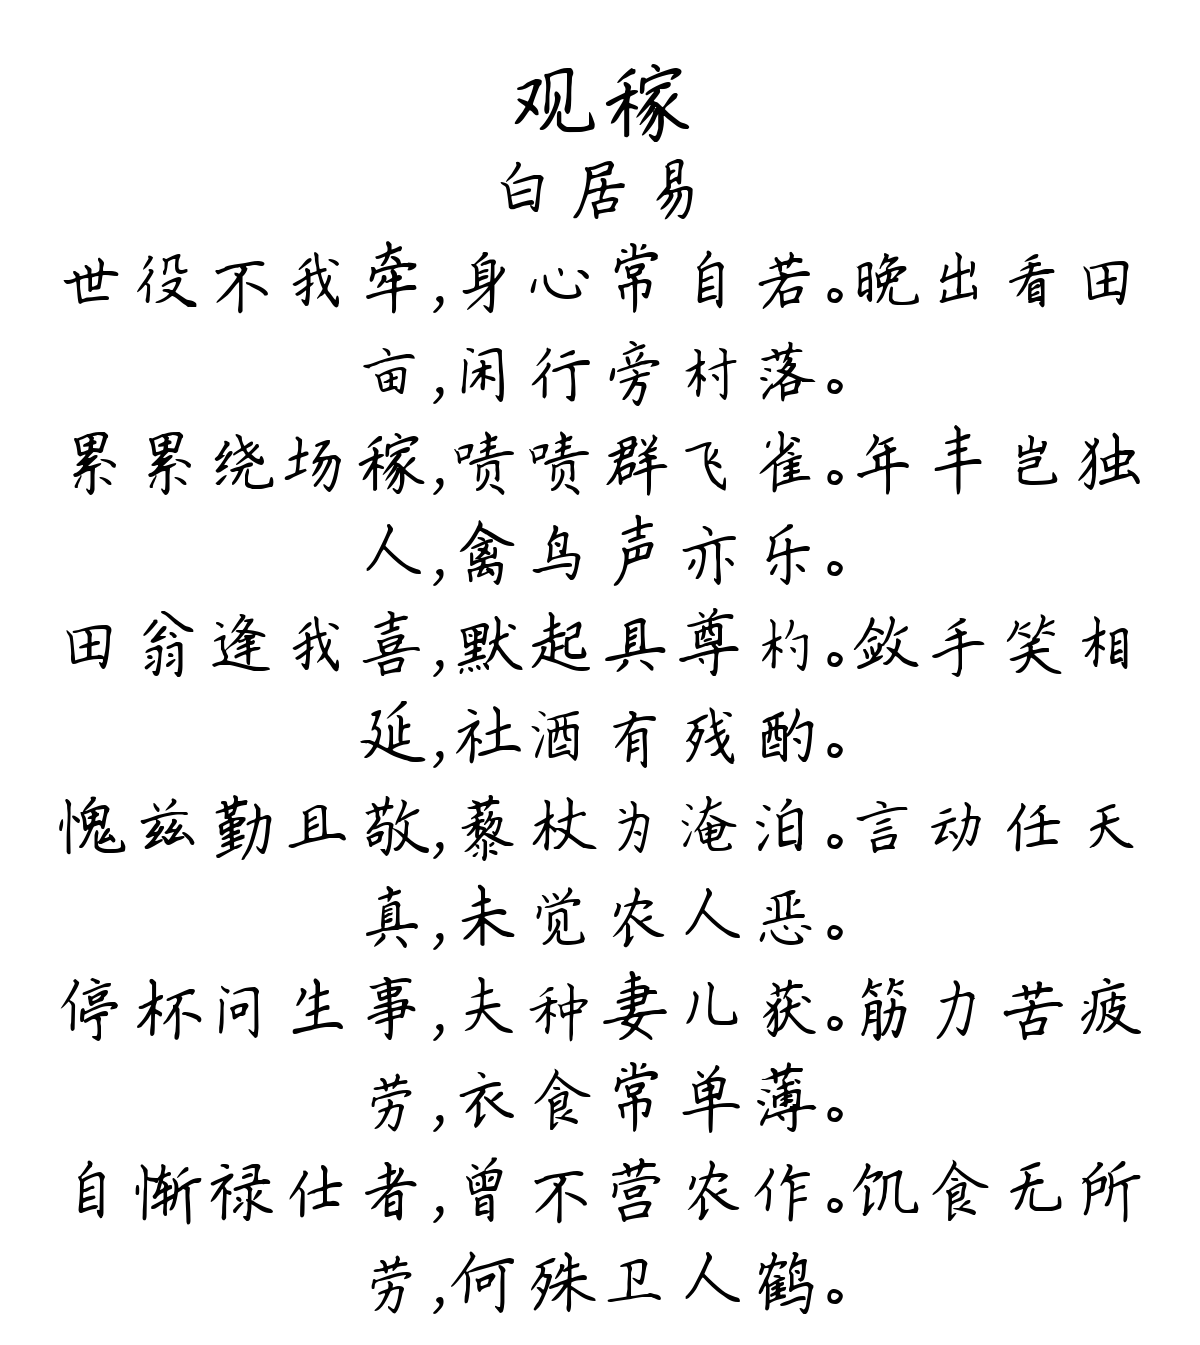 观稼
白居易
世役不我牵,身心常自若。晚出看田
亩,闲行旁村落。
累累绕场稼,啧啧群飞雀。年丰岂独
人,禽鸟声亦乐。
田翁逢我喜,默起具尊杓。敛手笑相
延,社酒有残酌。
愧兹勤且敬,藜杖为淹泊。言动任天
真,未觉农人恶。
停杯问生事,夫种妻儿获。筋力苦疲
劳,衣食常单薄。
自惭禄仕者,曾不营农作。饥食无所
劳,何殊卫人鹤。